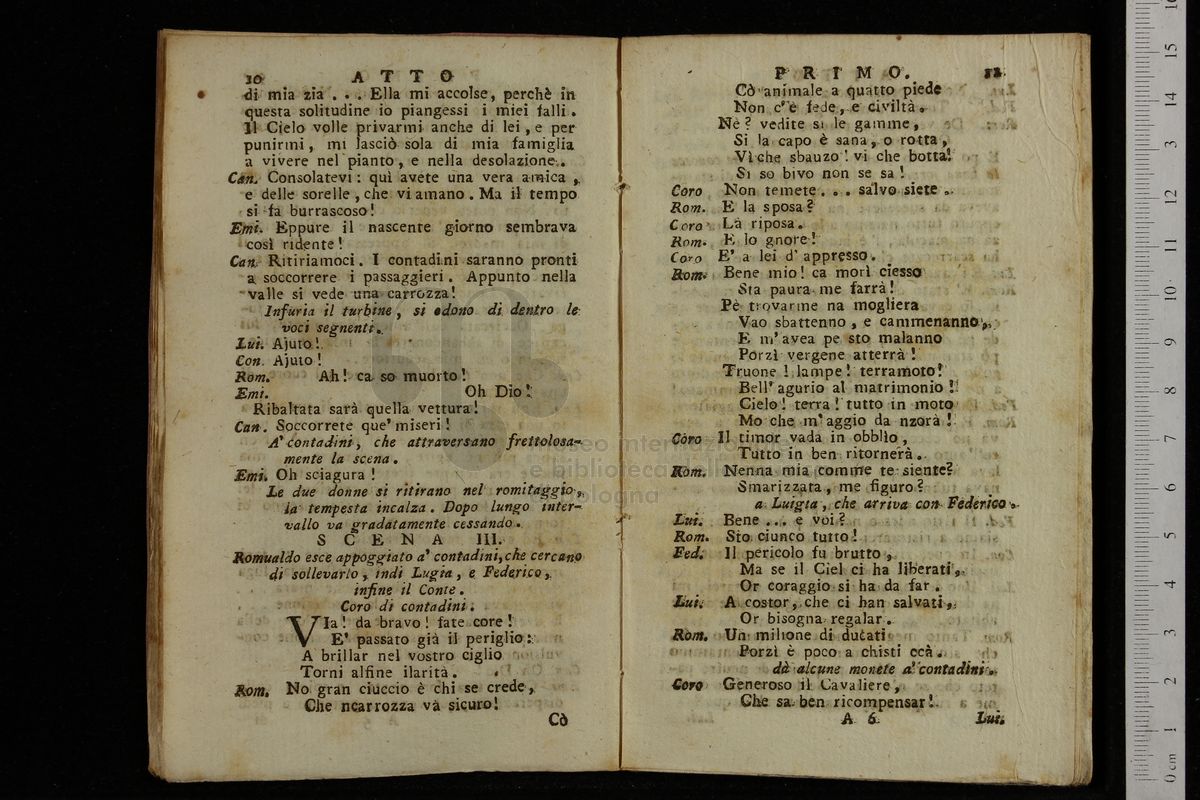 10 ATTO
di mia zia . . . Ella mi accolse, perchè in
questa solitudine io piangessi i miei falli.
Il Cielo volle privarmi anche di lei, e per
punirmi, mi lasciò sola di mia famiglia
a vivere nel pianto, e nella desolazione.
Can. Consolatevi: quì avete una vera amica,
e delle sorelle, che vi amano. Ma il tempo
si fa burrascoso!
Emi. Eppure il nascente giorno sembrava
così ridente!
Can. Ritiriamoci. I contadini saranno pronti
a soccorrere i passaggieri. Appunto nella
valle si vede una carrozza!
Infuria il turbine, si odono di dentro le
voci segnenti.
Lui. Ajuto!
Con. Ajuto!
Rom. Ah! ca so muorto!
Emi. Oh Dio!
Ribaltata sarà quella vettura!
Can. Soccorrete que' miseri!
A' contadini, che attraversano frettolosa-
mente la scena.
Emi. Oh sciagura!
Le due donne si ritirano nel romitaggio,
la tempesta incalza. Dopo lungo inter-
vallo va gradatamente cessando.
SCENA III.
Romualdo esce appoggiato a' contadini, che cercano
di sollevarlo, indi Lugia, e Federico,
infine il Conte.
Coro di contadini.
VIa! da bravo! fate core!
E' passato già il periglio:
A brillar nel vostro ciglio
Torni alfine ilarità.
Rom. No gran ciuccio è chi se crede,
Che ncarrozza và sicuro!
Cò
PRIMO. 11
Cò animale a quatto piede
Non c'è fede, e civiltà.
Nè? vedite si le gamme,
Si la capo è sana, o rotta,
Vì che sbauzo! vi che botta!
Si so bivo non se sa!
Coro Non temete . . . salvo siete.
Rom. E la sposa?
Coro Là riposa.
Rom. E lo gnore!
Coro E' a lei d'appresso.
Rom. Bene mio! ca morì ciesso
Sta paura me farrà!
Pè trovarme na mogliera
Vao sbattenno, e cammenanno,
E m'avea pe sto malanno
Porzì vergene atterrà!
Truone! lampe! terramoto!
Bell' agurio al matrimonio!
Cielo! terra! tutto in moto
Mo che m'aggio da nzorà!
Coro Il timor vada in obblìo,
Tutto in ben ritornerà.
Rom. Nenna mia comme te siente?
Smarizzata, me figuro?
a Luigia, che arriva con Federico.
Lui. Bene ... e voi?
Rom. Sto ciunco tutto!
Fed. Il pericolo fu brutto,
Ma se il Ciel ci ha liberati,
Or coraggio si ha da far.
Lui. A costor, che ci han salvati,
Or bisogna regalar.
Rom. Un milione di ducati
Porzì è poco a chisti ccà.
dà alcune monete a' contadini.
Coro Generoso il Cavaliere,
Che sa ben ricompensar!
A 6 Lui.